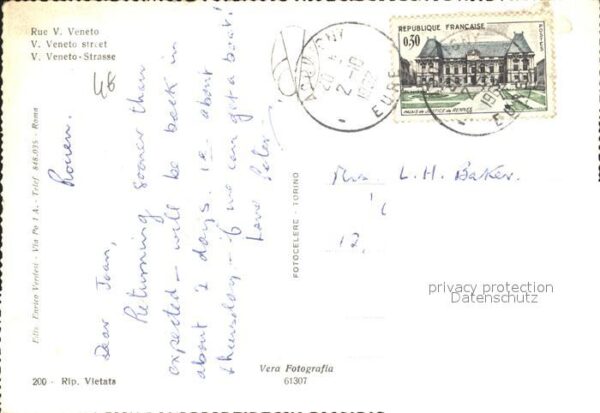 Rue V. Veneto
V. Veneto street
V. Veneto-Strasse
48
Rouen.
Dear Joan,
Returning sooner than
expected - will be back in
about 2 days. i.e. about
thursday - if we can get a boat!
Love Peter
Ediz. Enrico Verdesi - Via Po 1 A. - Telef 848.035 - Roma
200 - Rip. Vietata
Vera Fotografia
61307
FOTOCELERE - TORINO
EURE
REPUBLIQUE FRANÇAISE
0,30
POSTES
PALAIS de JUSTICE de RENNES
EURE
Mrs. L. H. Baker.
12,
privacy protection
Datenschutz